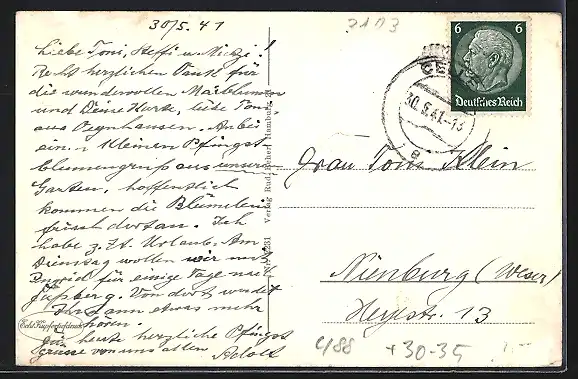 30/5.41
Liebe Toni, Steffi u. Mietzi!
Recht herzlichen Dank für
die wundervollen Maiblumen
und Deine Karte, liebe Toni
aus Oeynhausen. Anbei
einen kleinen Pfingst
blumengruß aus unserem
Garten, hoffentlich
kommen die Blümelein
frisch dort an. Ich
habe z. Zt. Urlaub. Am
Dienstag wollen wir mit
Ingrid für einige Tage nach
Von dort werdet
Ihr dann etwas mehr
hören.
Für heute herzliche Pfingst
grüsse von uns allen Adolf
Echt Kupfertiefdruck
Verlag Rud. Hamburg
6 6
Deutsches Reich
CELLE
30.5.41.-13
e
Frau Toni Klein
Nienburg (Weser)
13
488 +30-35